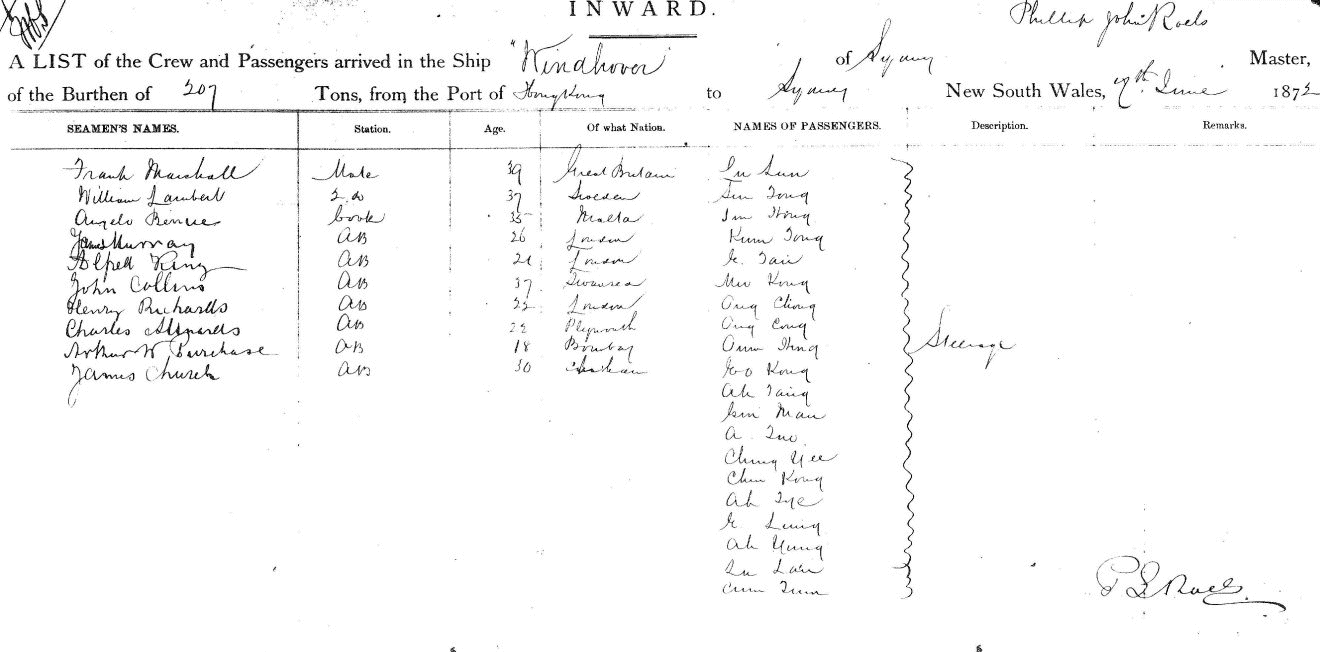 INWARD.
Phillip John Roels
A LIST of the Crew and Passengers arrived in the Ship "Windhover" of Sydney Master,
of the Burthen of 207 Tons, from the Port of Hong Kong to Sydney New South Wales, June 1872
SEAMEN'S NAMES. Station. Age. Of what Nation. NAMES OF PASSENGERS. Description. Remarks.
Frank Marshall Mate 39 Great Britain Su Sun
William Lambert 2 do 37 Sweden Sin Tong
Angelo Cook 35 Malta Hong
James Murray AB 26 London Kum Tong
Alfred King AB 21 London
John Collins AB 37 Swansea Kong
Henry Richards AB 22 London Ong Chong
Charles AB 22 Plymouth Ong Cong
Arthur W. Purchase AB 18 Bombay Hing Steerage
James Church AB 30 Kong
Ah Tang
Man
A
Chung Yee
Chu Kong
Ah Tye
Lung
Ah Yung
Lan
Cum
P J Roels.